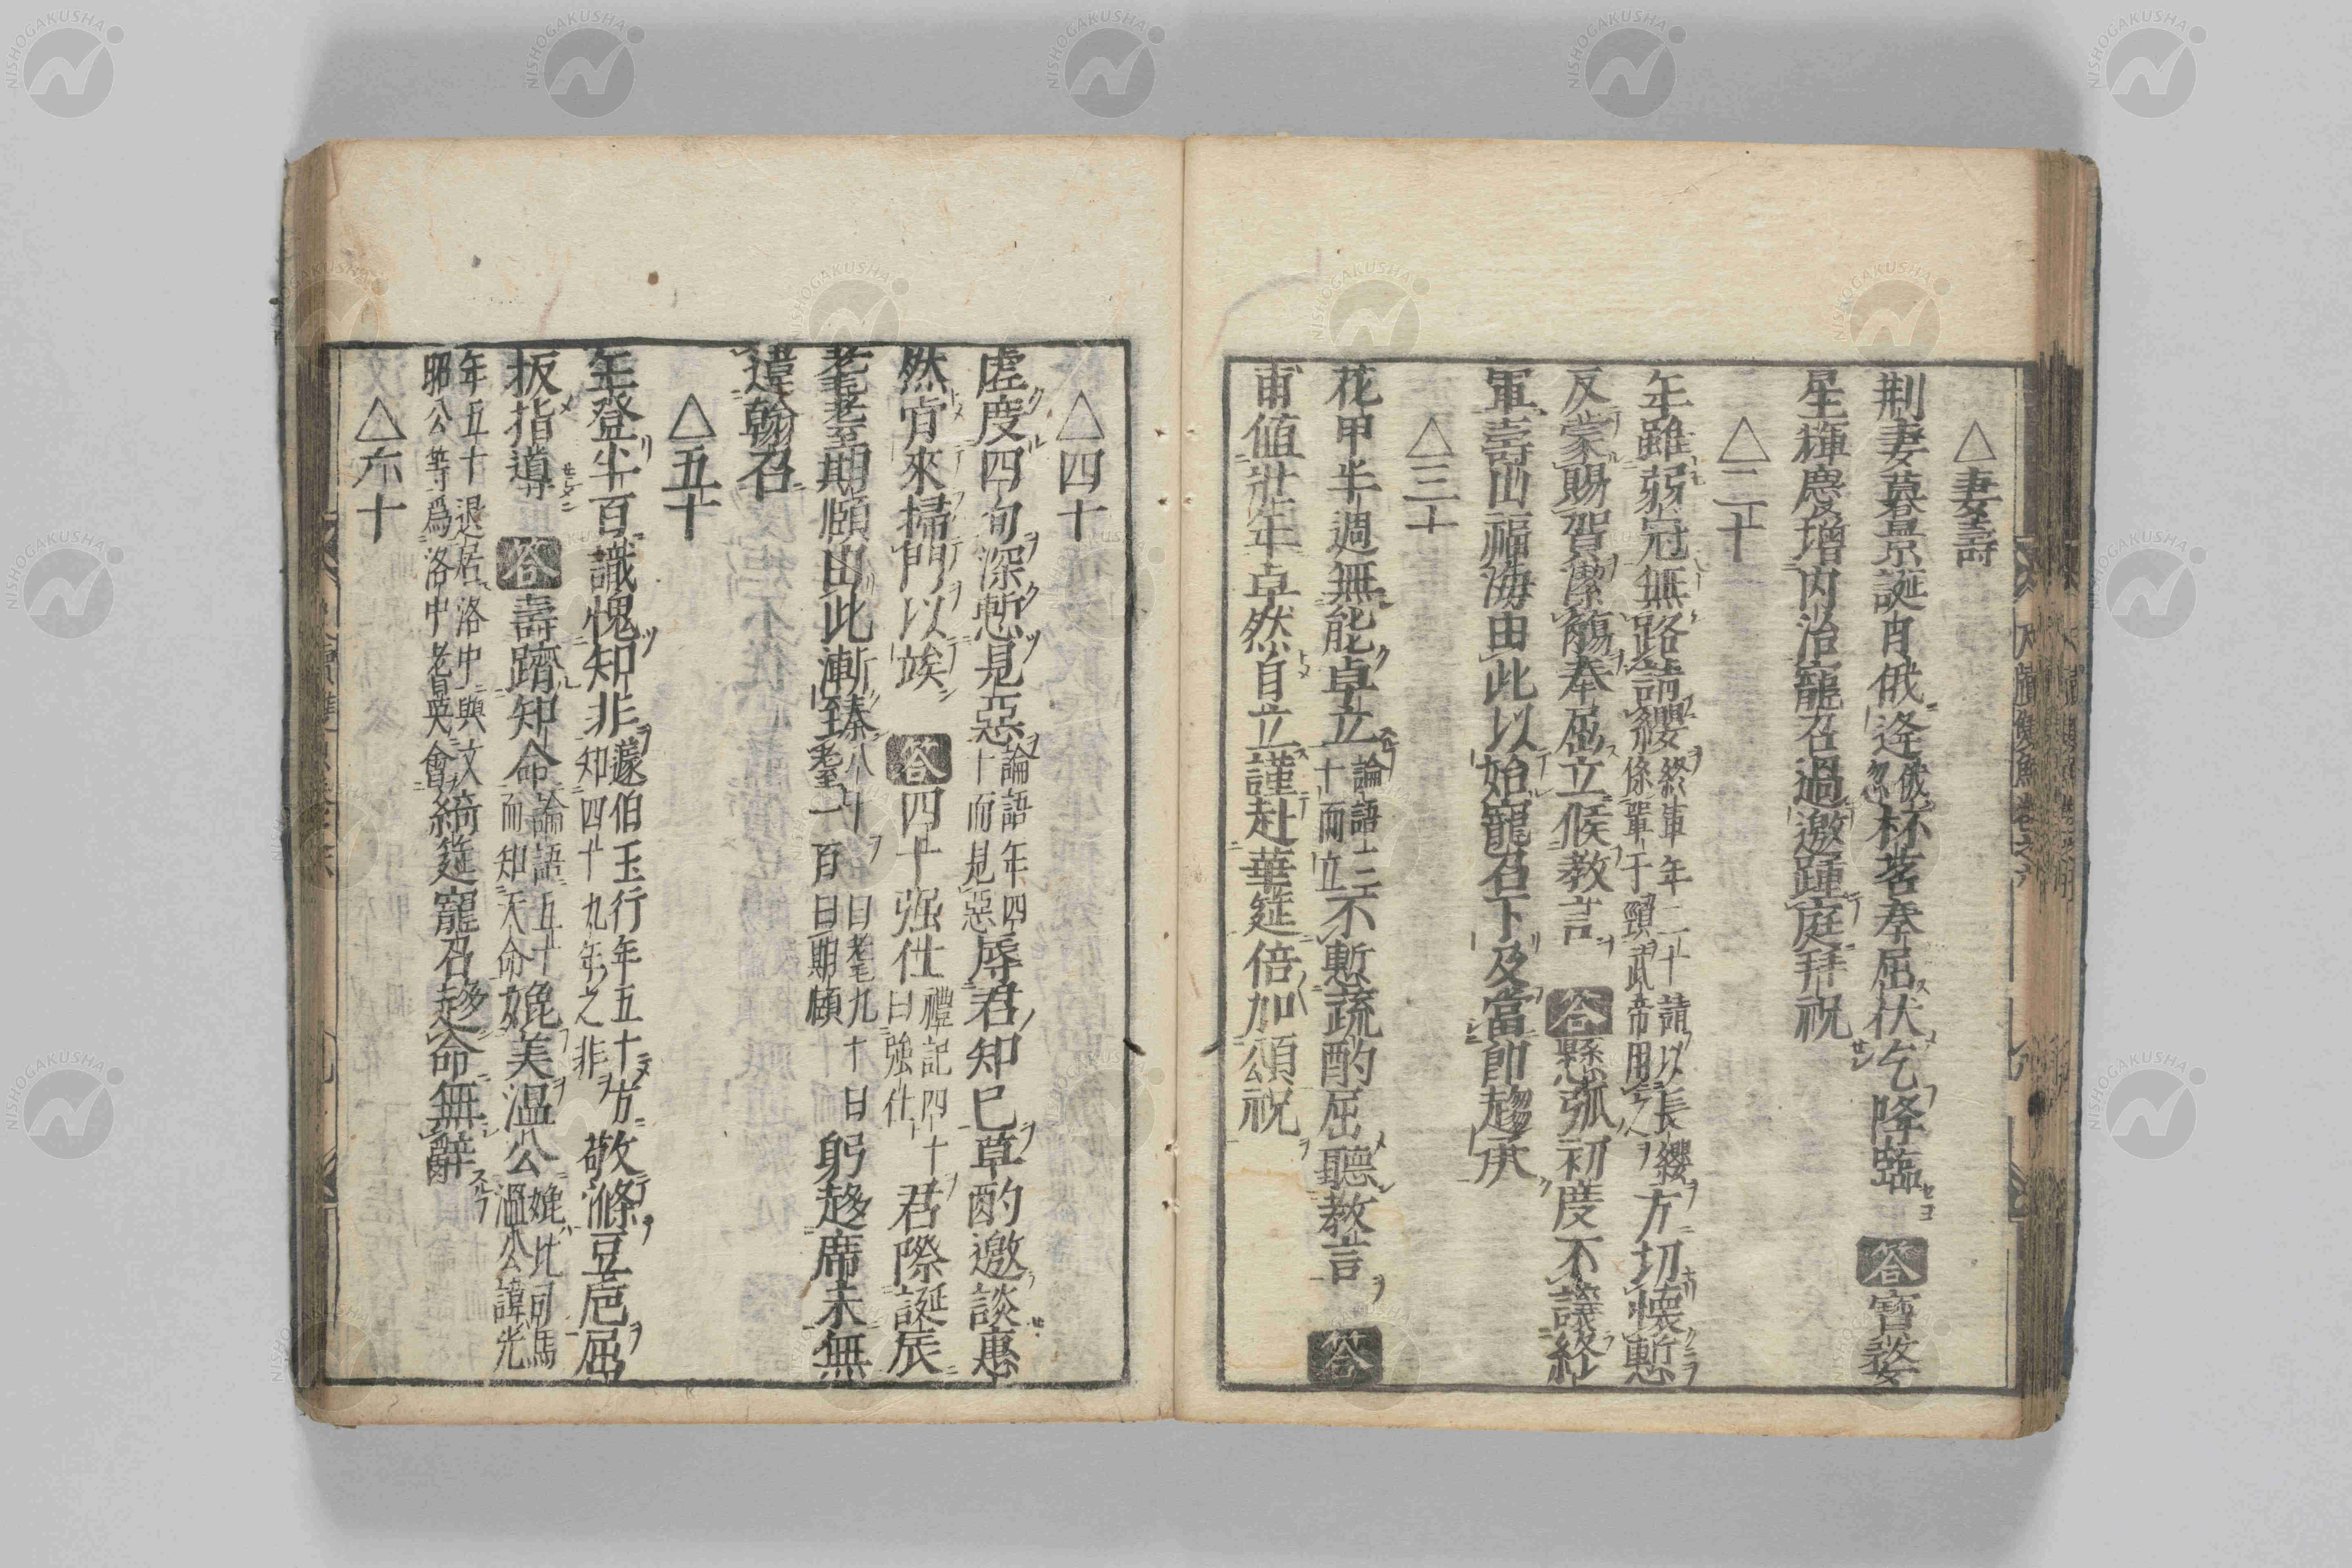 △妻壽
荆妻暮景誕肖俄逢俄忽杯茗奉屈伏乞降臨答寶婺
星輝慶增内治寵召過邀踵庭拜祝
△二十
年雖弱冠無路請纓終軍年二十請以長纓係單于頸武帝用之方切懷慙
反蒙賜賀潔觴奉屈立候教言答懸弧初度不議終
軍壽山福海由此以始寵召下及當卽趨承
△三十
花甲半週無能卓立論語三十而立不慙蔬酌屈聽教言答
甫值壯年卓然自立謹赴華筵倍加頌祝
△四十
虛度四旬深慙見惡論語年四十而見惡辱君知己草酌邀談惠
然肯來掃門以竢答四十强仕禮記四十曰強仕君際誕辰
耄耋期頤由此漸臻八十曰耋九十曰耄一百曰期頤躬趨席末無
違翰召
△五十
年登半百識愧知非蘧伯玉行年五十方知四十九年之非敬滌豆卮屈
扳指導答壽躋知命論語五十而知天命娩美溫公娩比司馬溫公諱光
年五十退居洛中與文昭公等爲洛中耆英會綺筵寵召趨命無辭
△六十
NISHOGAKUSHA